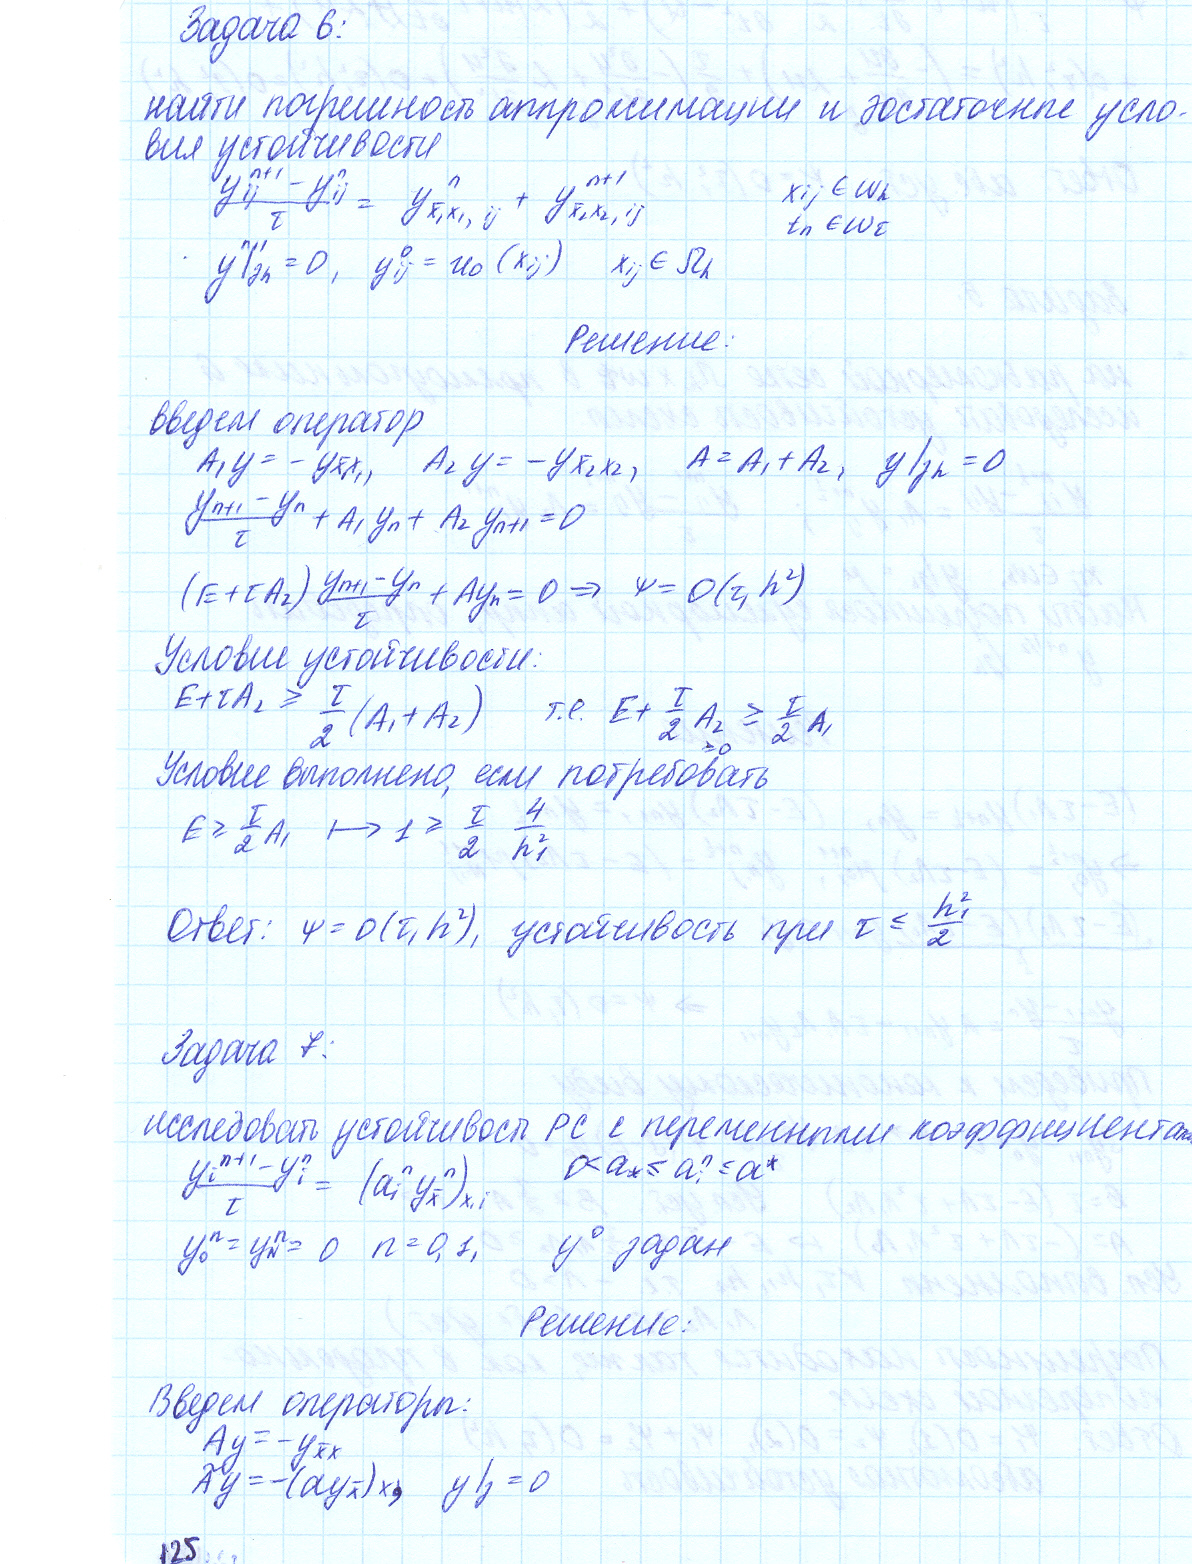 Задача 6:
найти погрешность аппроксимации и достаточные усло-
вия устойчивости
(y_ij^{n+1} - y_ij^n)/τ = y^n_{x̄₁x₁, ij} + y^{n+1}_{x̄₂x₂, ij}   x_ij ∈ ω_h
t_n ∈ ω_τ
y^{n+1}|_{γh} = 0, y⁰_ij = u₀(x_ij)   x_ij ∈ Ω_h
Решение:
введем оператор
A₁y = -y_{x̄₁x₁}, A₂y = -y_{x̄₂x₂}, A = A₁ + A₂, y|_{γh} = 0
(y_{n+1} - y_n)/τ + A₁y_n + A₂y_{n+1} = 0
(E + τA₂) (y_{n+1} - y_n)/τ + Ay_n = 0 ⇒ ψ = O(τ, h²)
Условие устойчивости:
E + τA₂ ≥ τ/2 (A₁ + A₂)   т.е. E + τ/2 A₂ ≥ τ/2 A₁
≥0
Условие выполнено, если потребовать
E ≥ τ/2 A₁ ↦ 1 ≥ τ/2 4/h₁²
Ответ: ψ = O(τ, h²), устойчивость при τ ≤ h₁²/2
Задача 7:
исследовать устойчивость РС с переменными коэффициентами
(y_i^{n+1} - y_i^n)/τ = (a_i^n y_x̄^n)_{x,i}   0 < a_* ≤ a_i^n ≤ a^*
y₀^n = y_N^n = 0   n = 0,1,   y⁰ задан
Решение:
Введем операторы:
Ay = -y_{x̄x}
Ãy = -(ay_x̄)_x,   y|_γ = 0
125